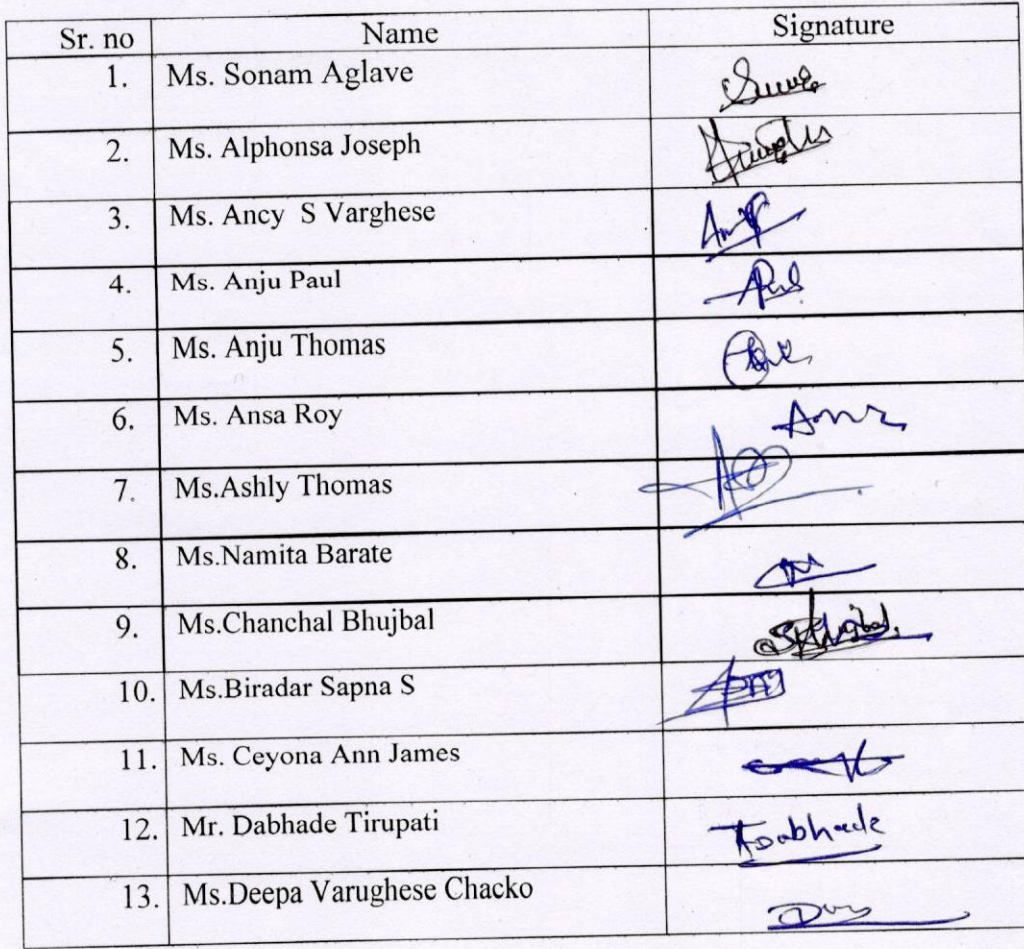 Sr. no Name Signature
1. Ms. Sonam Aglave
2. Ms. Alphonsa Joseph
3. Ms. Ancy S Varghese
4. Ms. Anju Paul
5. Ms. Anju Thomas
6. Ms. Ansa Roy
7. Ms.Ashly Thomas
8. Ms.Namita Barate
9. Ms.Chanchal Bhujbal
10. Ms.Biradar Sapna S
11. Ms. Ceyona Ann James
12. Mr. Dabhade Tirupati TDabhade
13. Ms.Deepa Varughese Chacko